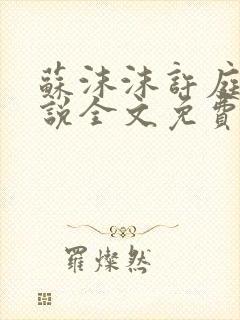 蘇沫沫許庭
說全文免費
羅燦然